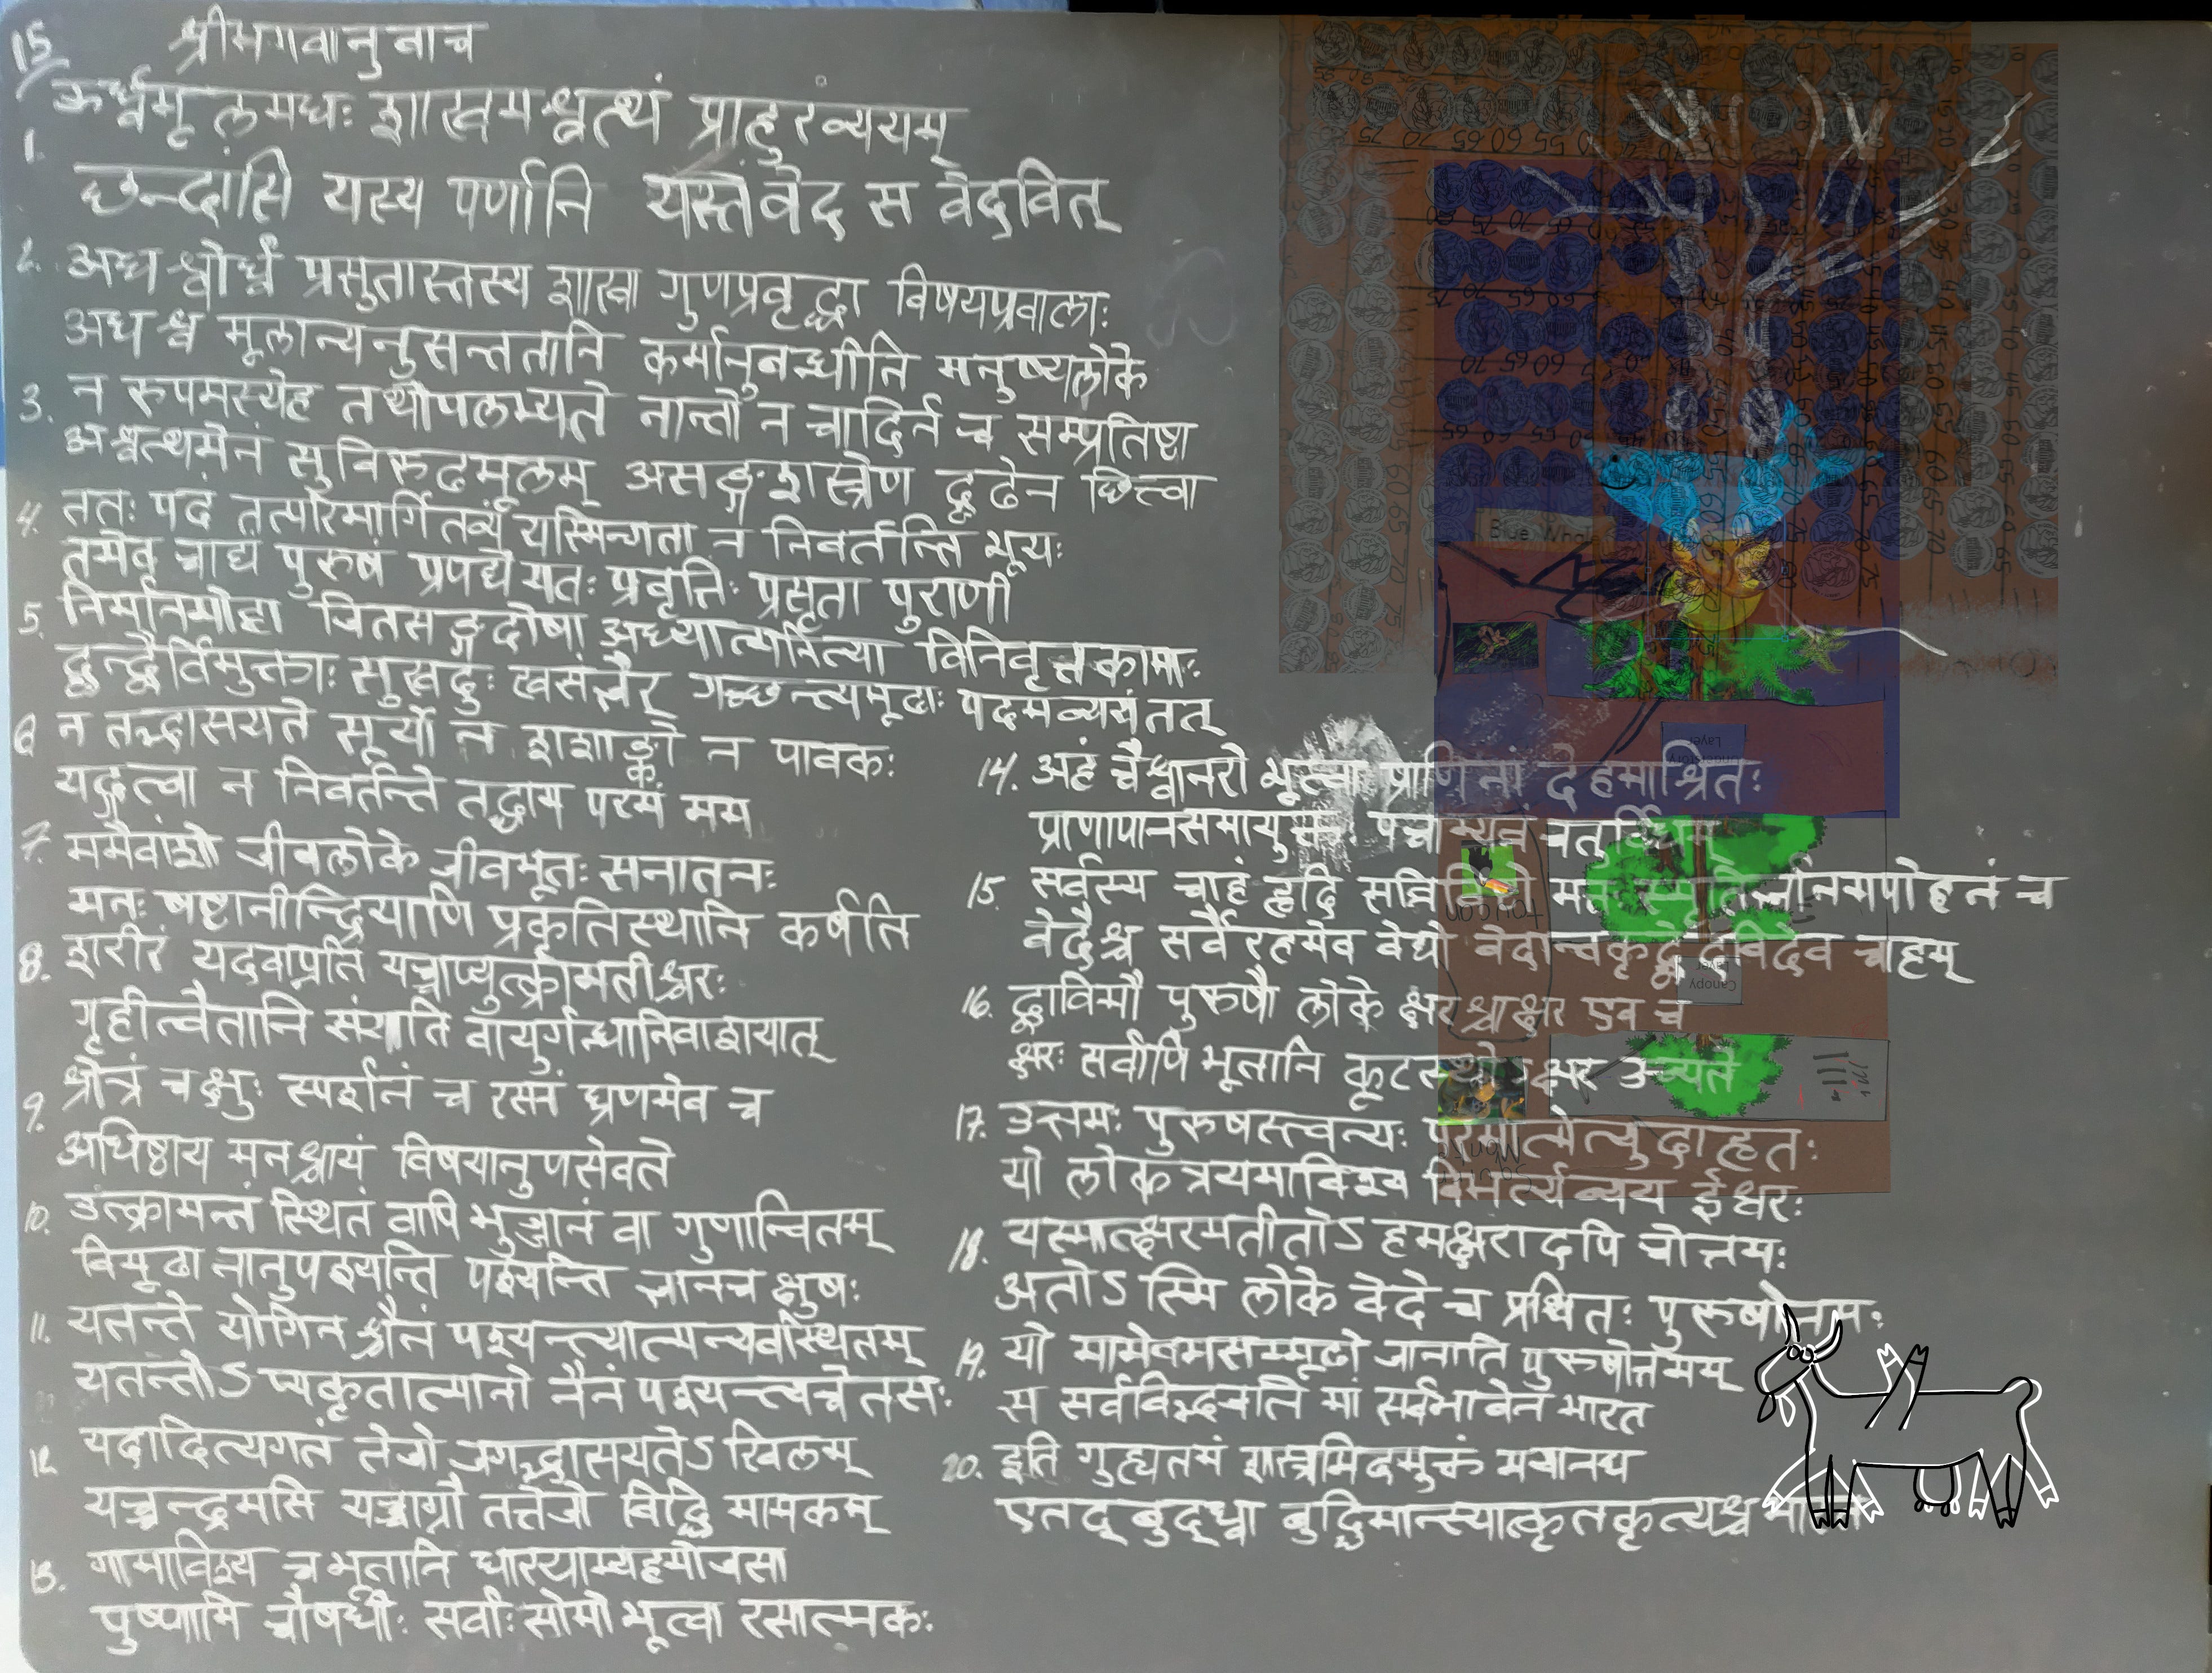 15 श्रीभगवानुवाच
1. ऊर्ध्वमूलमधः शाखमश्वत्थं प्राहुरव्ययम्
छन्दांसि यस्य पर्णानि यस्तंवेद स वेदवित्
2. अधश्चोर्ध्वं प्रसुतास्तस्य शाखा गुणप्रवृद्धा विषयप्रवालाः
अधश्च मूलान्यनुसन्ततानि कर्मानुबन्धीनि मनुष्यलोके
3. न रुपमस्येह तथोपलभ्यते नान्तो न चादिर्न च सम्प्रतिष्ठा
अश्वत्थमेनं सुविरुढमूलम् असङ्गशस्त्रेण दृढेन छित्त्वा
4. ततः पदं तत्परिमार्गितव्यं यस्मिन्गता न निवर्तन्ति भूयः
तमेव चाद्यं पुरुषं प्रपद्ये यतः प्रवृत्तिः प्रसृता पुराणी
5. निर्मानमोहा जितसङ्गदोषा अध्यात्मनित्या विनिवृत्तकामाः
द्वन्द्वैर्विमुक्ताः सुखदुःखसंज्ञैर् गच्छन्त्यमूढाः पदमव्ययं तत्
6 न तद्भासयते सूर्यो न शशाङ्को न पावकः
यद्गत्वा न निवर्तन्ते तद्धाम परमं मम
7. ममैवांशो जीवलोके जीवभूतः सनातनः
मनः षष्टानीन्द्रियाणि प्रकृतिस्थानि कर्षति
8. शरीरं यदवाप्नोति यच्चाप्युत्क्रामतीश्वरः
गृहीत्वैतानि संयाति वायुर्गन्धानिवाशयात्
9. श्रोत्रं चक्षुः स्पर्शनं च रसनं घ्रणमेव च
अधिष्ठाय मनश्चायं विषयानुपसेवते
10. उत्क्रामन्तं स्थितं वापि भुञ्जानं वा गुणान्वितम्
विमूढा नानुपश्यन्ति पश्यन्ति ज्ञानचक्षुषः
11. यतन्ते योगिनश्चैनं पश्यन्त्यात्मन्यवस्थितम्
यतन्तोऽ प्यकृतात्मानो नैनं पश्यन्त्यचेतसः
12 यदादित्यगतं तेजो जगद्भासयतेऽ खिलम्
यच्चन्द्रमसि यच्चाग्नौ तत्तेजो विद्धि मामकम्
13. गामाविश्य च भूतानि धारयाम्यहमोजसा
पुष्णामि चौषधीः सर्वाः सोमो भूत्वा रसात्मकः
14. अहं वैश्वानरो भूत्वा प्राणिनां देहमाश्रितः
प्राणापानसमायुक्तः पचाम्यन्नं चतुर्विधम्
15. सर्वस्य चाहं हृदि सन्निविष्टो मत्तः स्मृतिर्ज्ञानमपोहनं च
वेदैश्च सर्वैरहमेव वेद्यो वेदान्तकृद्वेदविदेव चाहम्
16. द्वाविमौ पुरुषौ लोके क्षरश्चाक्षर एव च
क्षरः सर्वाणि भूतानि कूटस्थोऽक्षर उच्यते
17. उत्तमः पुरुषस्त्वन्यः परमात्मेत्युदाहृतः
यो लोकत्रयमाविश्य बिभर्त्यव्यय ईश्वरः
18. यस्मात्क्षरमतीतोऽ हमक्षरादपि चोत्तमः
अतोऽ स्मि लोके वेदे च प्रथितः पुरुषोत्तमः
19. यो मामेवमसम्मूढो जानाति पुरुषोत्तमम्
स सर्वविद्भजति मां सर्वभावेन भारत
20. इति गुह्यतमं शास्त्रमिदमुक्तं मयानघ
एतद् बुद्ध्वा बुद्धिमान्स्यात्कृतकृत्यश्च
Blue Whal
Canopy
Layer
Layer